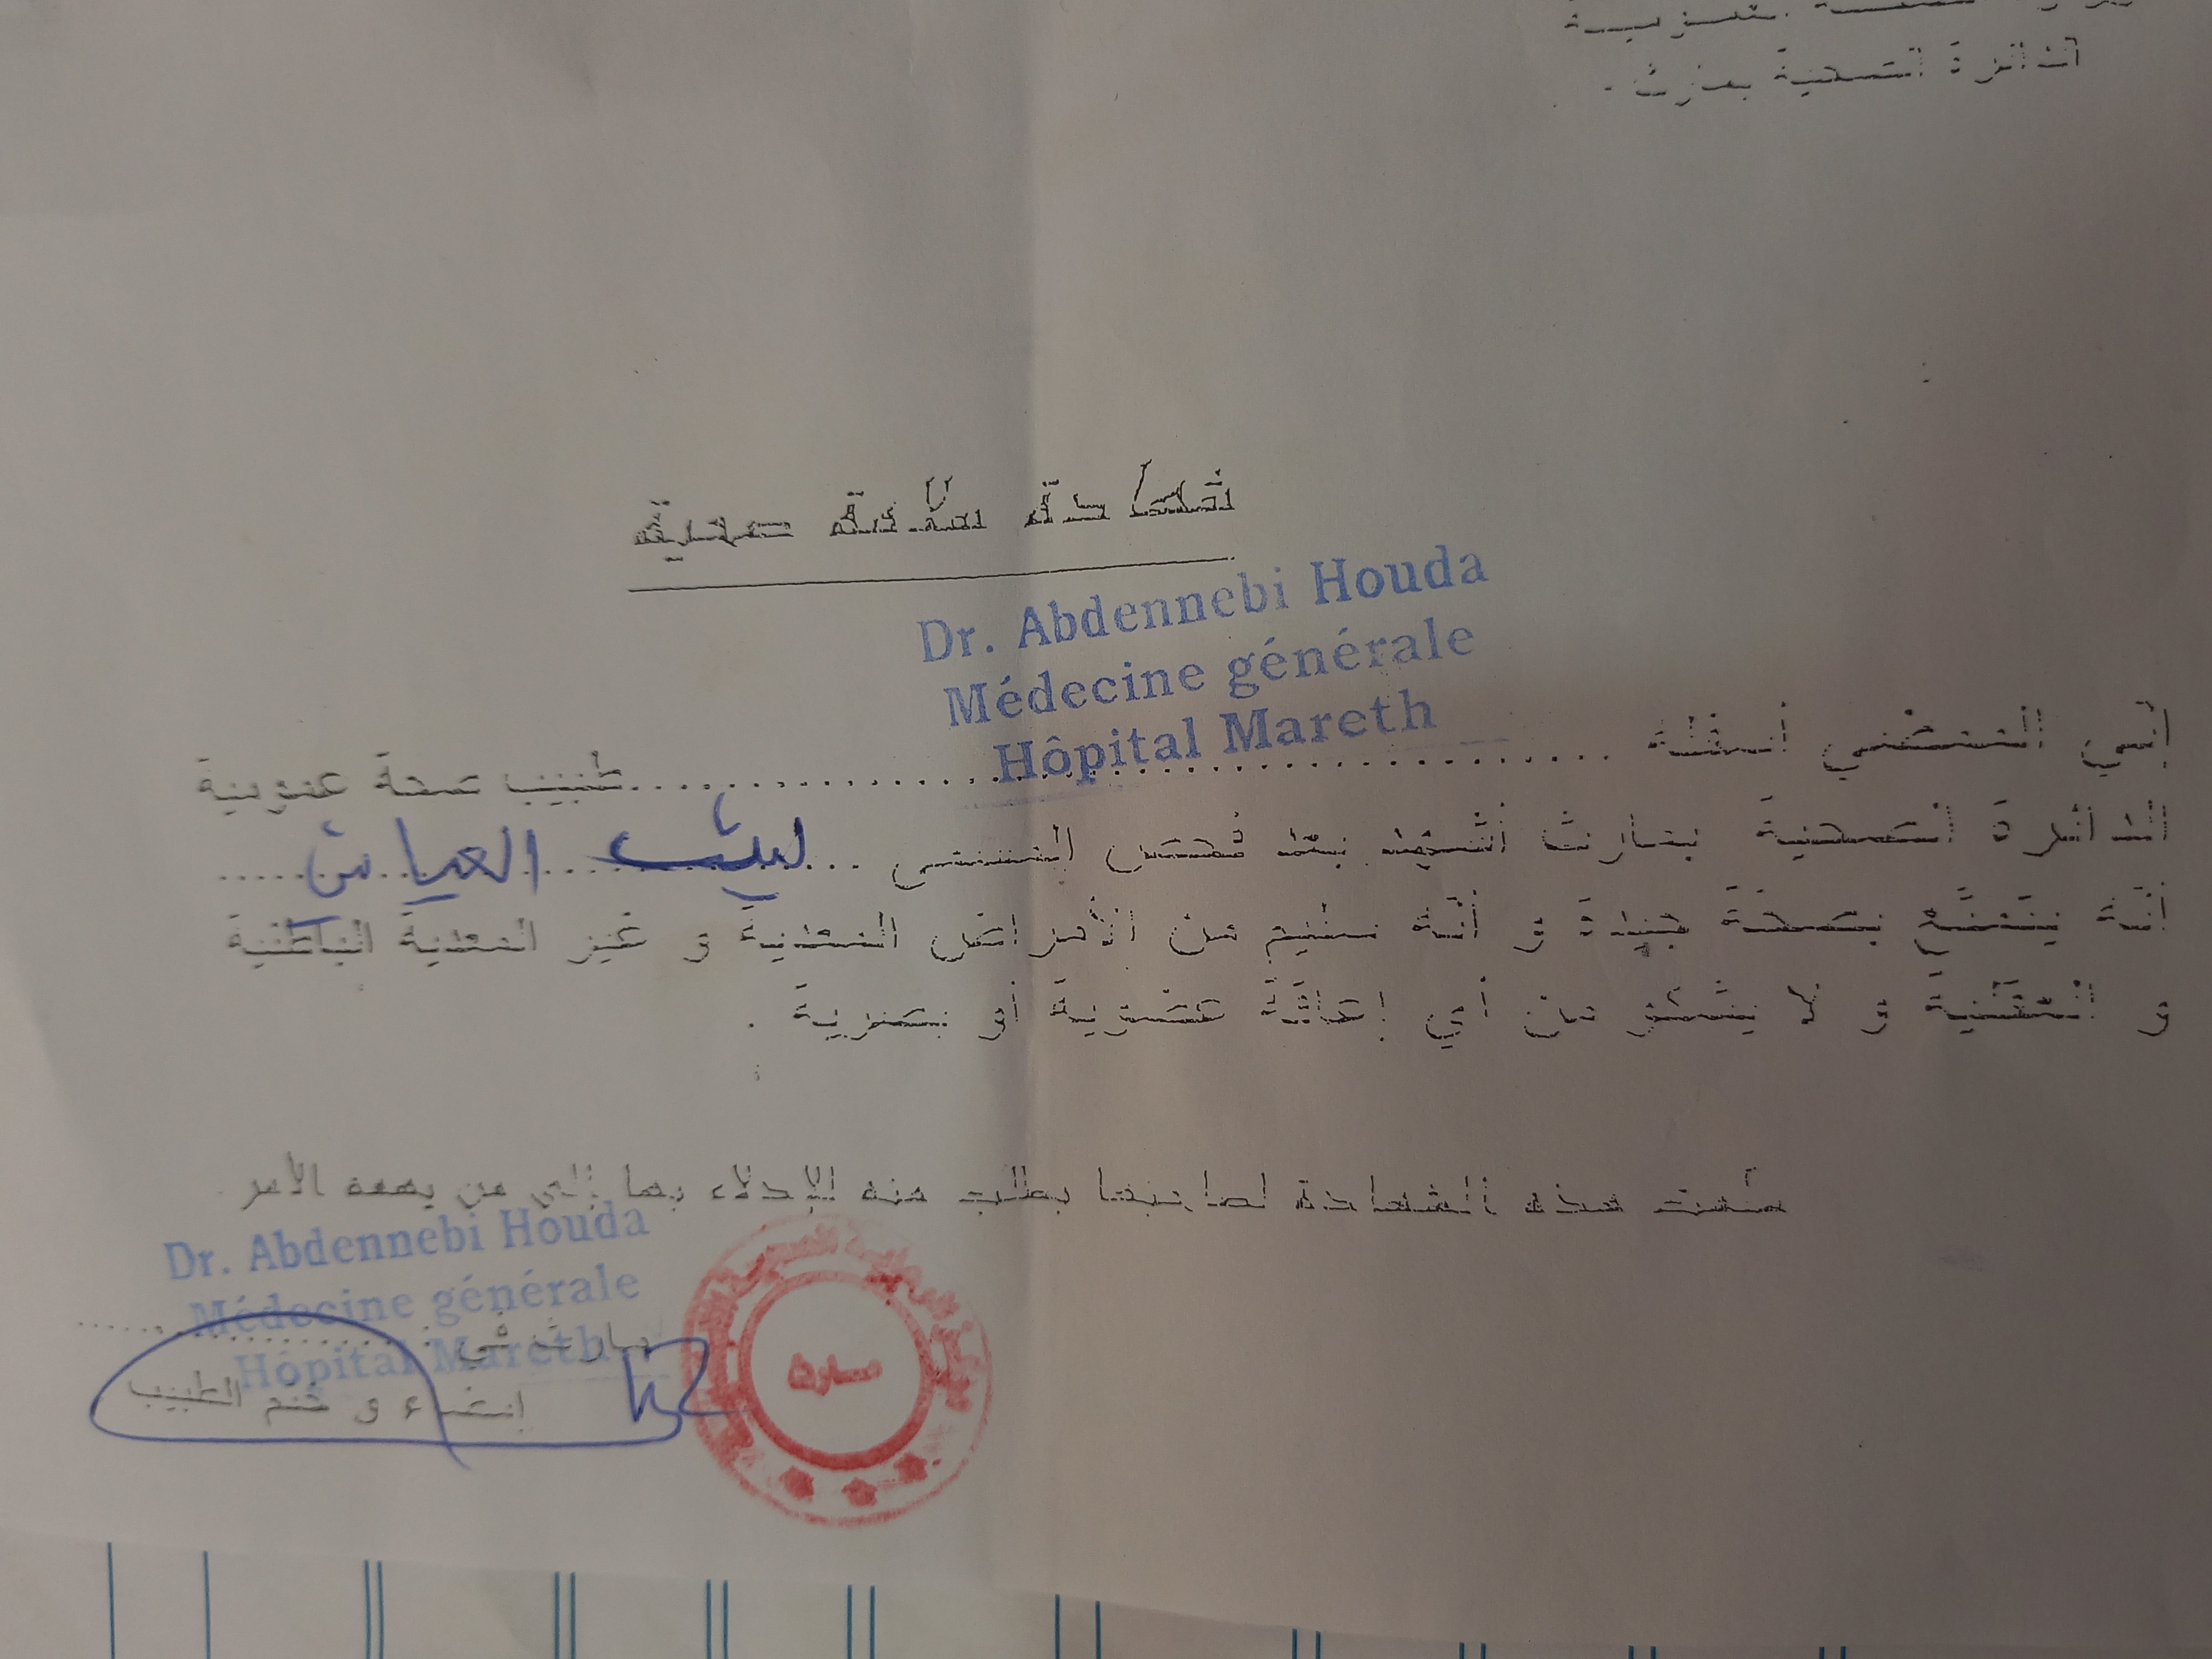 الدائرة الصحية بمارث.
شهادة سلامة صحية
Dr. Abdennebi Houda
Médecine générale
Hôpital Mareth
إنّي الممضي أسفله ........................ طبيب صحة عمومية
الدائرة الصحية بمارث أشهد بعد فحص المسمى ... ليث العياش ...
أنّه يتمتّع بصحّة جيدة و أنّه سليم من الأمراض المعدية و غير المعدية الباطنية
و العقلية و لا يشكو من أي إعاقة عضوية أو بصرية .
سلّمت هذه الشهادة لصاحبها بطلب منه للإدلاء بها إلى من يهمه الأمر
Dr. Abdennebi Houda
Médecine générale
Hôpital Mareth
مارث في ....................
إمضاء و ختم الطبيب
مارث